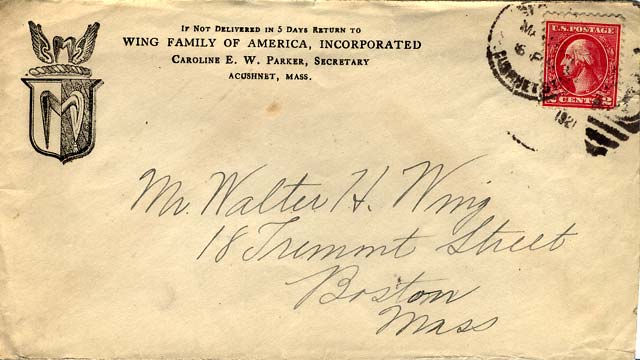 If Not Delivered in 5 Days Return to
WING FAMILY OF AMERICA, INCORPORATED
Caroline E. W. Parker, Secretary
ACUSHNET, MASS.
U.S. POSTAGE
CENTS 2
1921
Mr. Walter H. Wing
18 Tremont Street
Boston
Mass